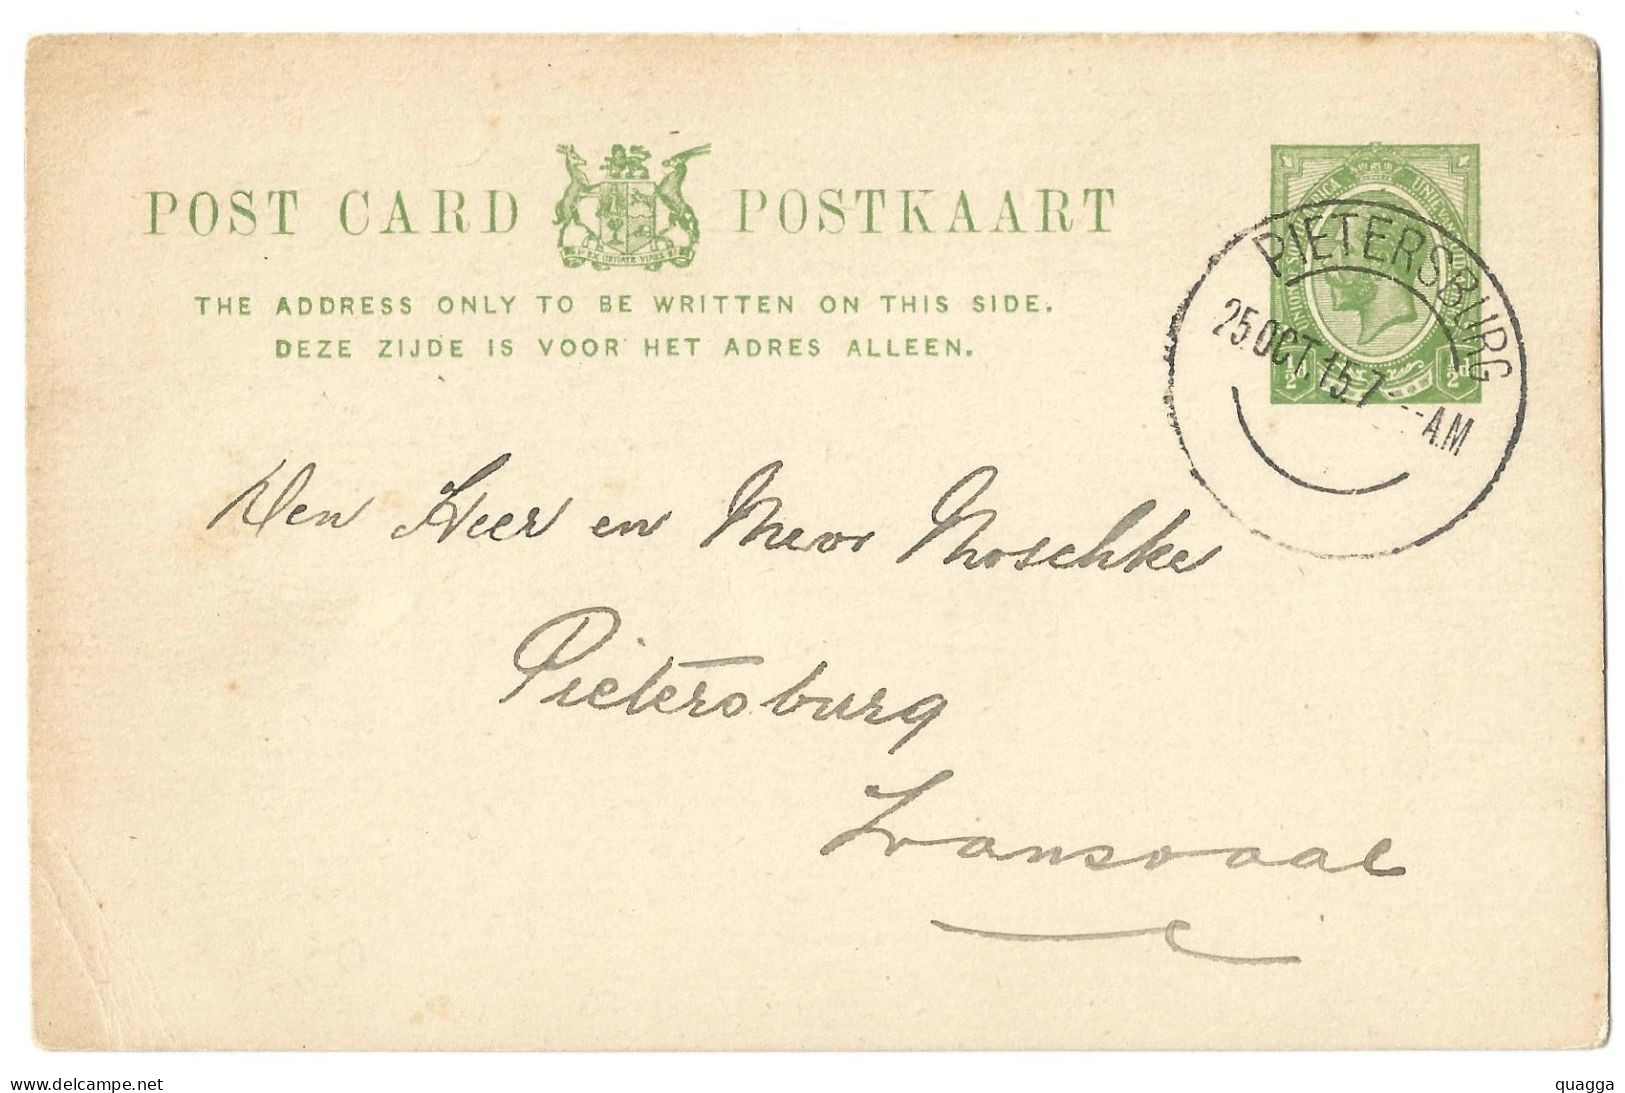 POST CARD POSTKAART
EX UNITATE VIRES
THE ADDRESS ONLY TO BE WRITTEN ON THIS SIDE.
DEZE ZIJDE IS VOOR HET ADRES ALLEEN.
½d ½d
PIETERSBURG
25.OCT.15.7 AM
Den Heer en Mevr Moschke
Pietersburg
Transvaal
www.delcampe.net
quagga